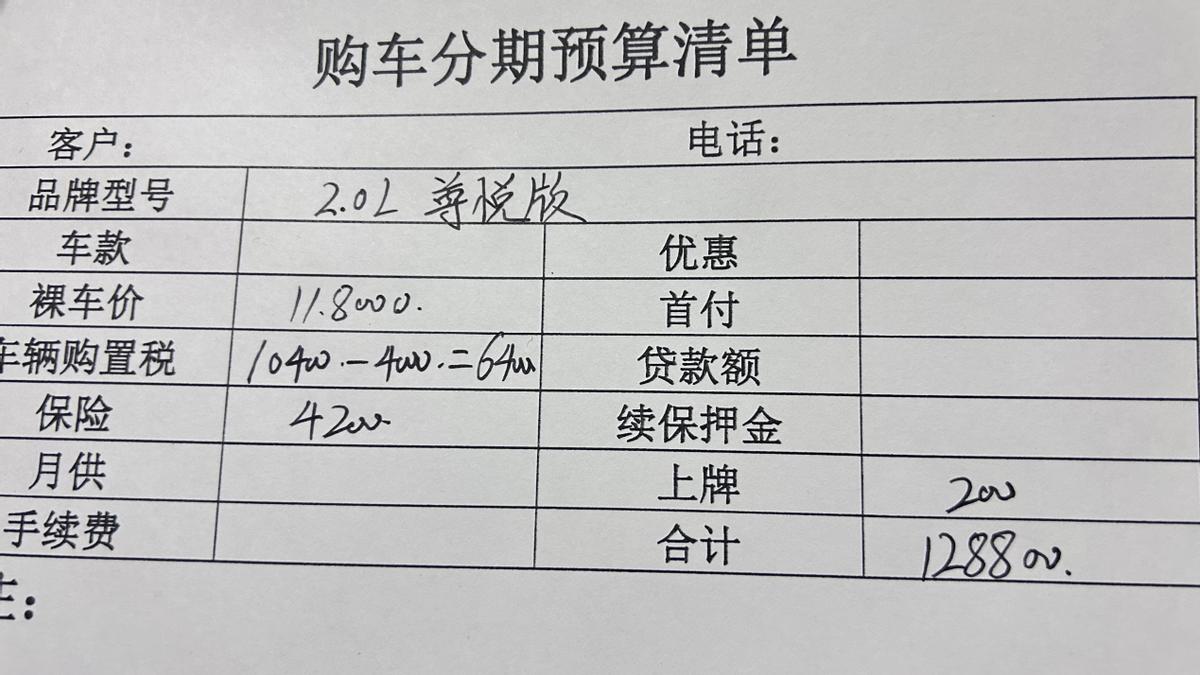 购车分期预算清单
客户： 电话：
品牌型号 2.0L 尊悦版
车款 优惠
裸车价 11.8000. 首付
车辆购置税 10400-4000.=6400 贷款额
保险 4200 续保押金
月供 上牌 200
手续费 合计 128800.
注：